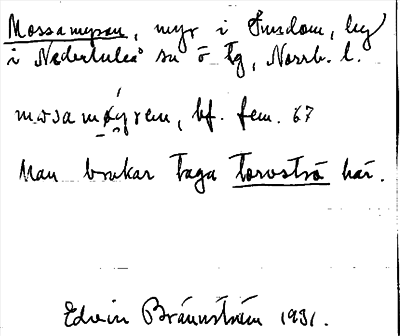 Mossamyran, myr i Smedom, hg
i Nederluleå sn ö tg, Norrb. l.
mosamøyren, bf. fem. 67
Man brukar taga torvströ här.
Edvin Brännström 1931.